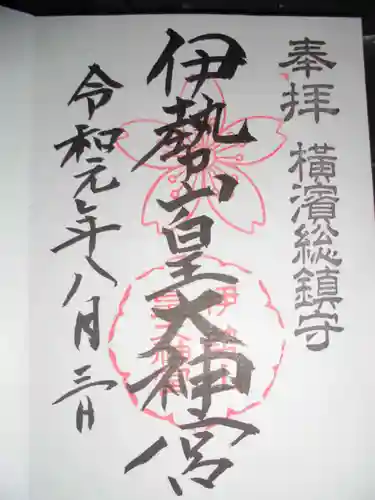 奉拝 横濱総鎮守
伊勢山皇大神宮
令和元年八月三日